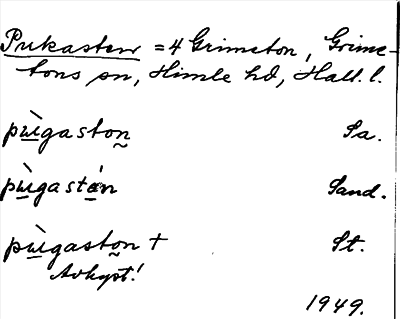 Pukasten = 4 Grimeton, Grime-
tons sn, Himle hd, Hall. l.
pùgaston Sa.
pùgastán Sand.
pùgaston + St.
Avkpt!
1949.